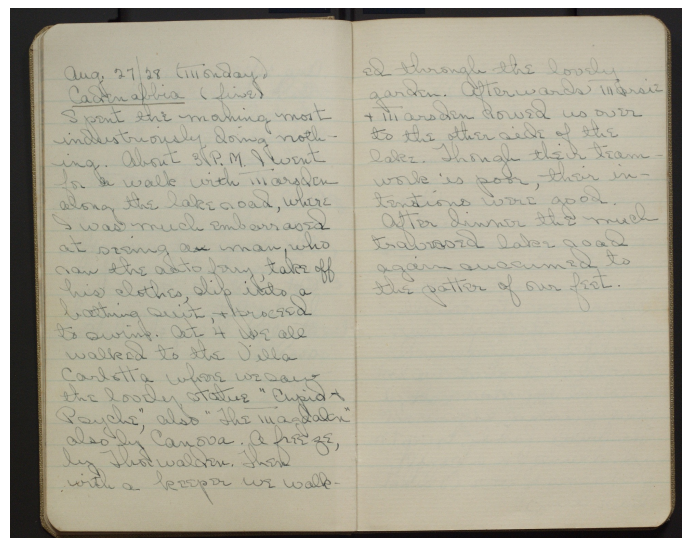 Aug. 27/28 (Monday)
Cadenabbia (five)
Spent the morning most
industriously doing noth-
ing. About 3 P.M. I went
for a walk with Marsden
along the lake road, where
I was much embarrassed
at seeing a man, who
ran the auto ferry, take off
his clothes, slip into a
bathing suit, + proceed
to swim. At 4 we all
walked to the Villa
Carlotta where we saw
the lovely statue "Cupid +
Psyche", also "The Magdalen"
also by Canova. A frieze,
by Thorwalden. Then
with a keeper we walk-
ed through the lovely
garden. Afterwards Marsie
+ Marsden rowed us over
to the other side of the
lake. Though their team-
work is poor, their in-
tentions were good.
After dinner the much
traversed lake road
again succumed to
the patter of our feet.